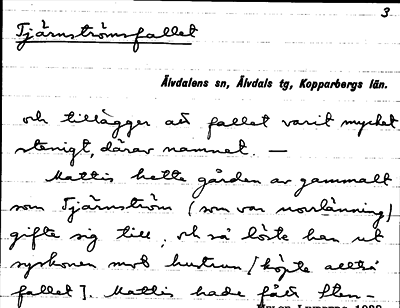 3
Tjärnströmsfallet
Älvdalens sn, Älvdals tg, Kopparbergs län.
och tillägger att fallet varit mycket
stenigt, därav namnet. —
Mattis hette gården av gammalt
som Tjärnström (som var norrlänning)
gifte sig till, och så löste han ut
syskonen mot hustrun [köpte alltså
fallet]. Mattis hade fått